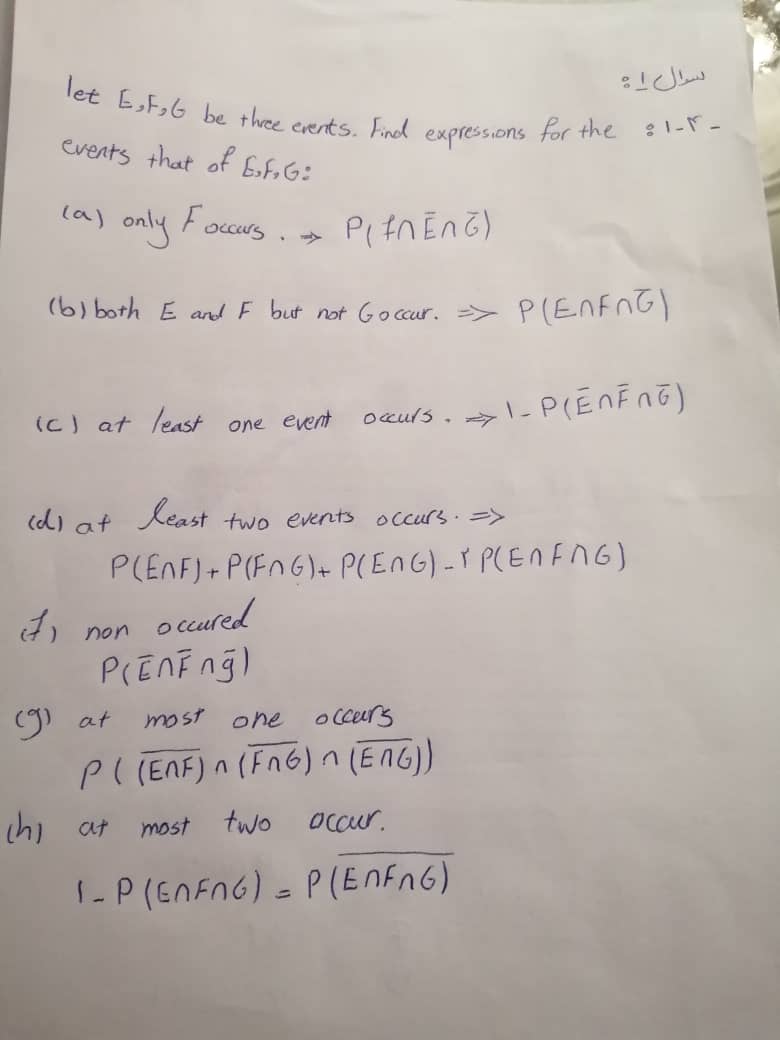 سوال ۱:
let E,F,G be three events. Find expressions for the :۱-۲-
events that of E,F,G:
(a) only F occurs. ⇒ P(F∩Ē∩Ḡ)
(b) both E and F but not G occur. => P(E∩F∩Ḡ)
(c) at least one event occurs. ⇒ 1-P(Ē∩F̄∩Ḡ)
(d) at least two events occurs. =>
P(E∩F)+P(F∩G)+P(E∩G)-۲P(E∩F∩G)
(f) non occured
P(Ē∩F̄∩ḡ)
(g) at most one occurs
P((E̅∩̅F̅)∩(F̅∩̅G̅)∩(E̅∩̅G̅))
(h) at most two occur.
1-P(E∩F∩G)=P(E̅∩̅F̅∩̅G̅)